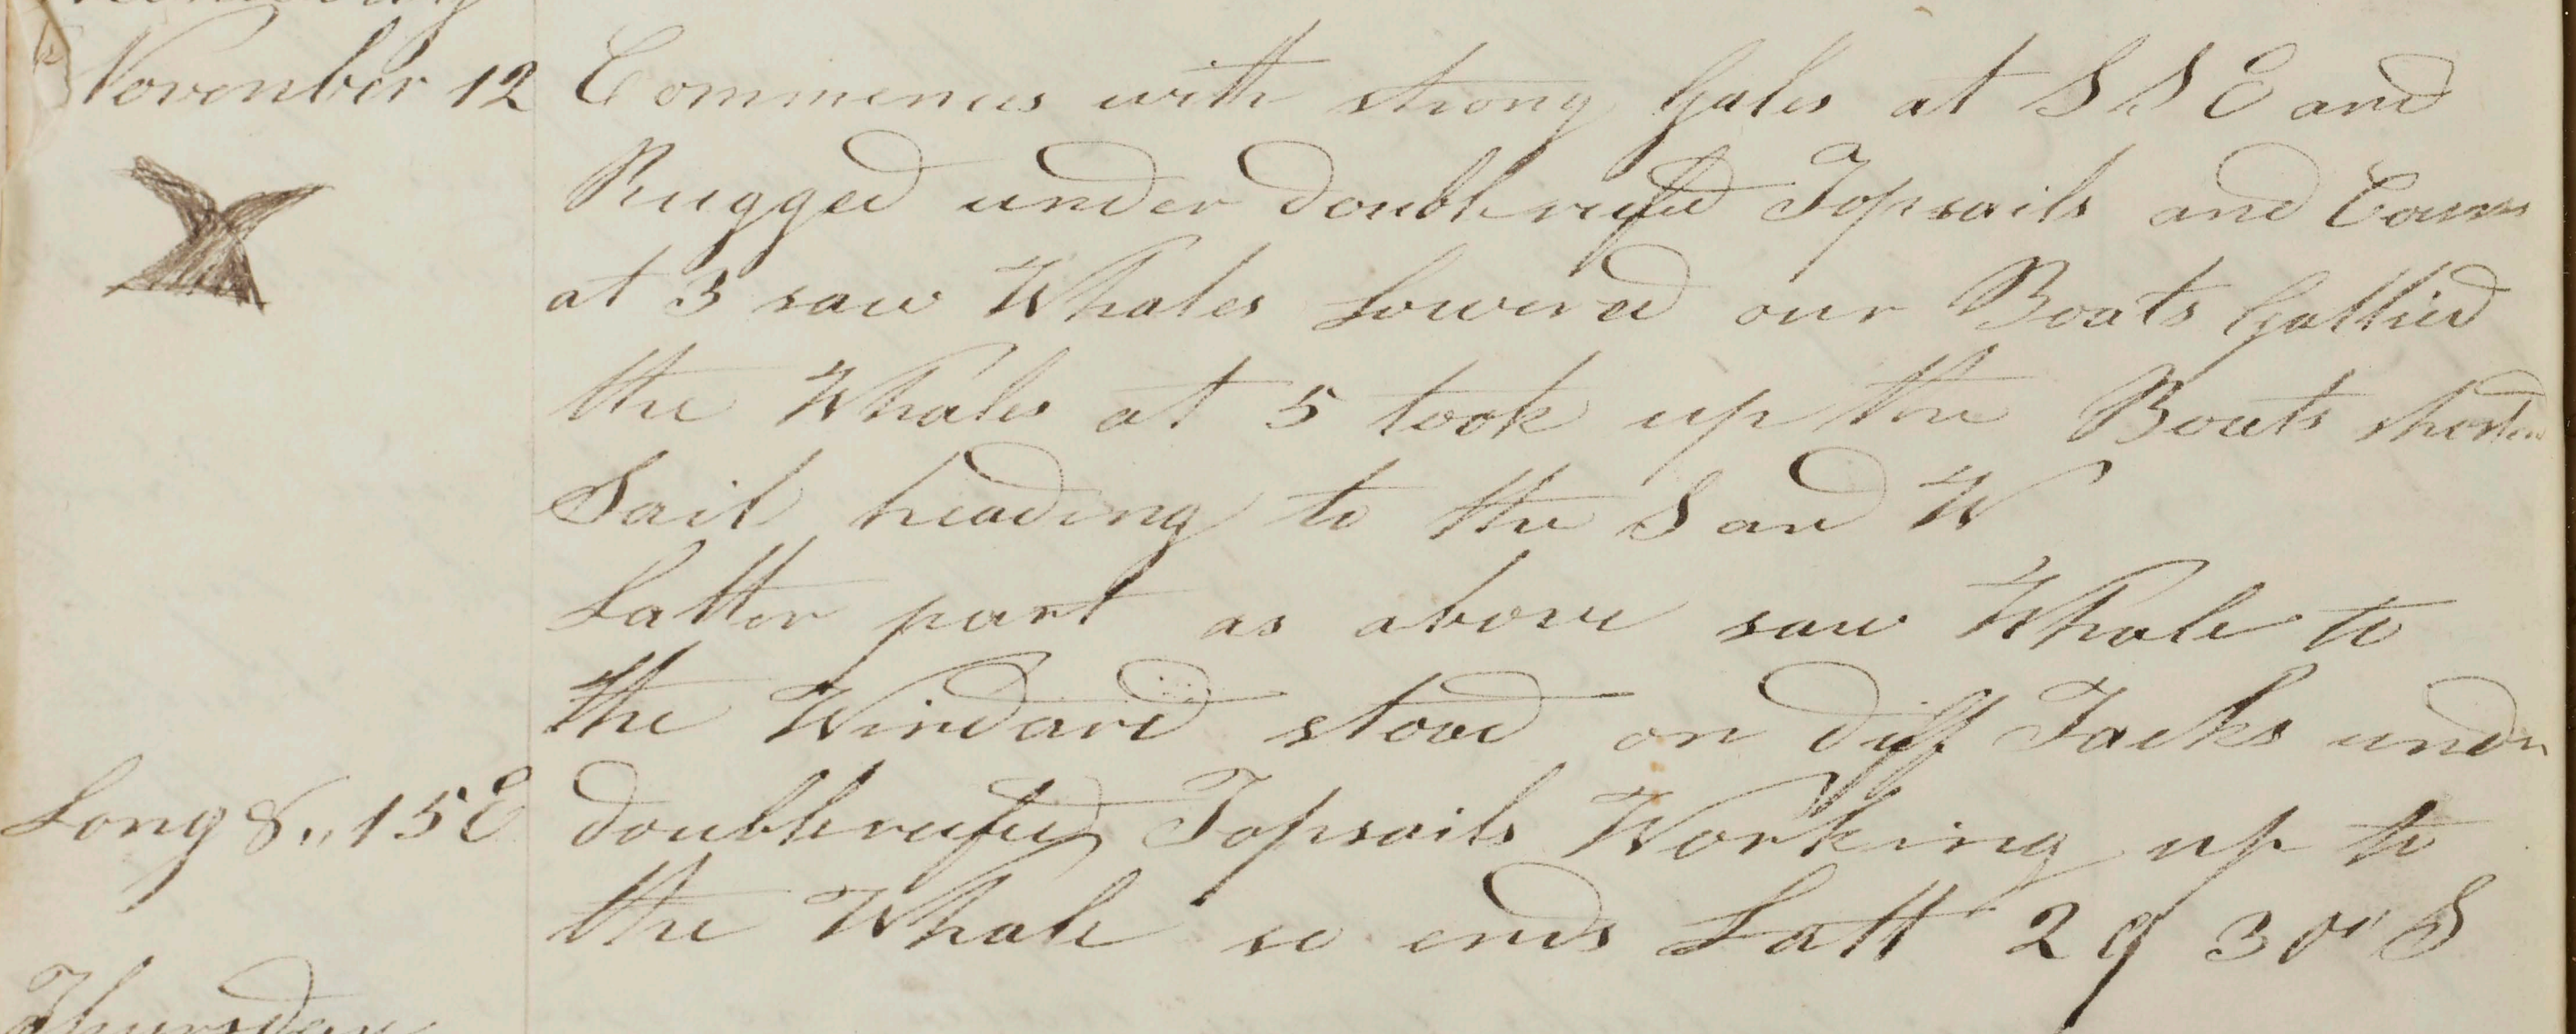 November 12 Commences with strong Gales at S S E and
Rugged under double reefed Topsails and Courses
at 3 saw Whales Lowered our Boats Gallied
the Whales at 5 took up the Boats shorten
Sail heading to the S and W
Latter part as above saw Whale to
the Windard stood on diff Tacks under
Long 8,,15 E double reefed Topsails Working up to
the Whale so ends Latt 29 30 S
Thursday